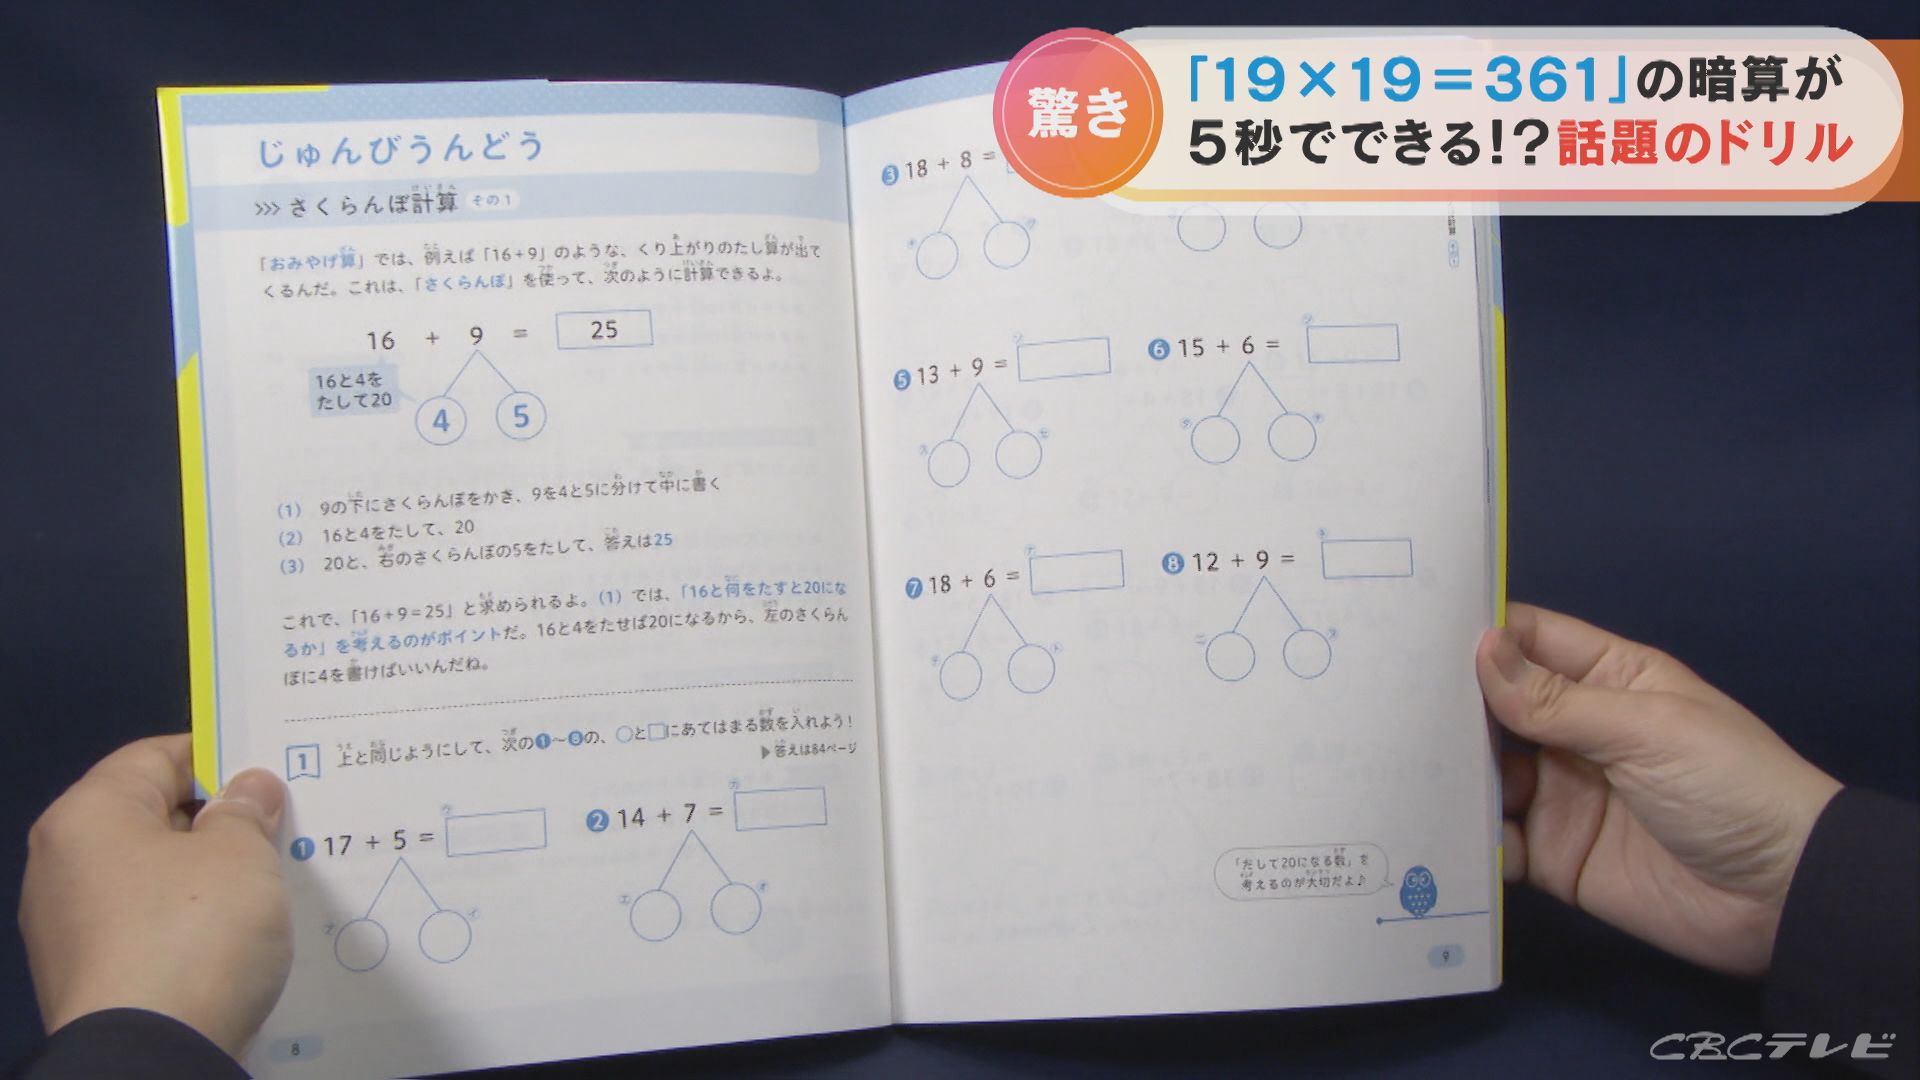 驚き
「19×19=361」の暗算が
5秒でできる!?話題のドリル
じゅんびうんどう
>>> さくらんぼ計算 その1
「おみやげ算」では、例えば「16+9」のような、くり上がりのたし算が出て
くるんだ。これは、「さくらんぼ」を使って、次のように計算できるよ。
16 + 9 = 25
16と4を
たして20
4 5
(1) 9の下にさくらんぼをかき、9を4と5に分けて中に書く
(2) 16と4をたして、20
(3) 20と、右のさくらんぼの5をたして、答えは25
これで、「16+9=25」と求められるよ。(1)では、「16と何をたすと20にな
るか」を考えるのがポイントだ。16と4をたせば20になるから、左のさくらん
ぼに4を書けばいいんだね。
1 上と同じようにして、次の❶〜❽の、○と□にあてはまる数を入れよう!
▶答えは84ページ
❶ 17 + 5 =
❷ 14 + 7 =
8
❸ 18 + 8 =
❺ 13 + 9 =
❻ 15 + 6 =
❼ 18 + 6 =
❽ 12 + 9 =
「たして20になる数」を
考えるのが大切だよ♪
9
CBCテレビ